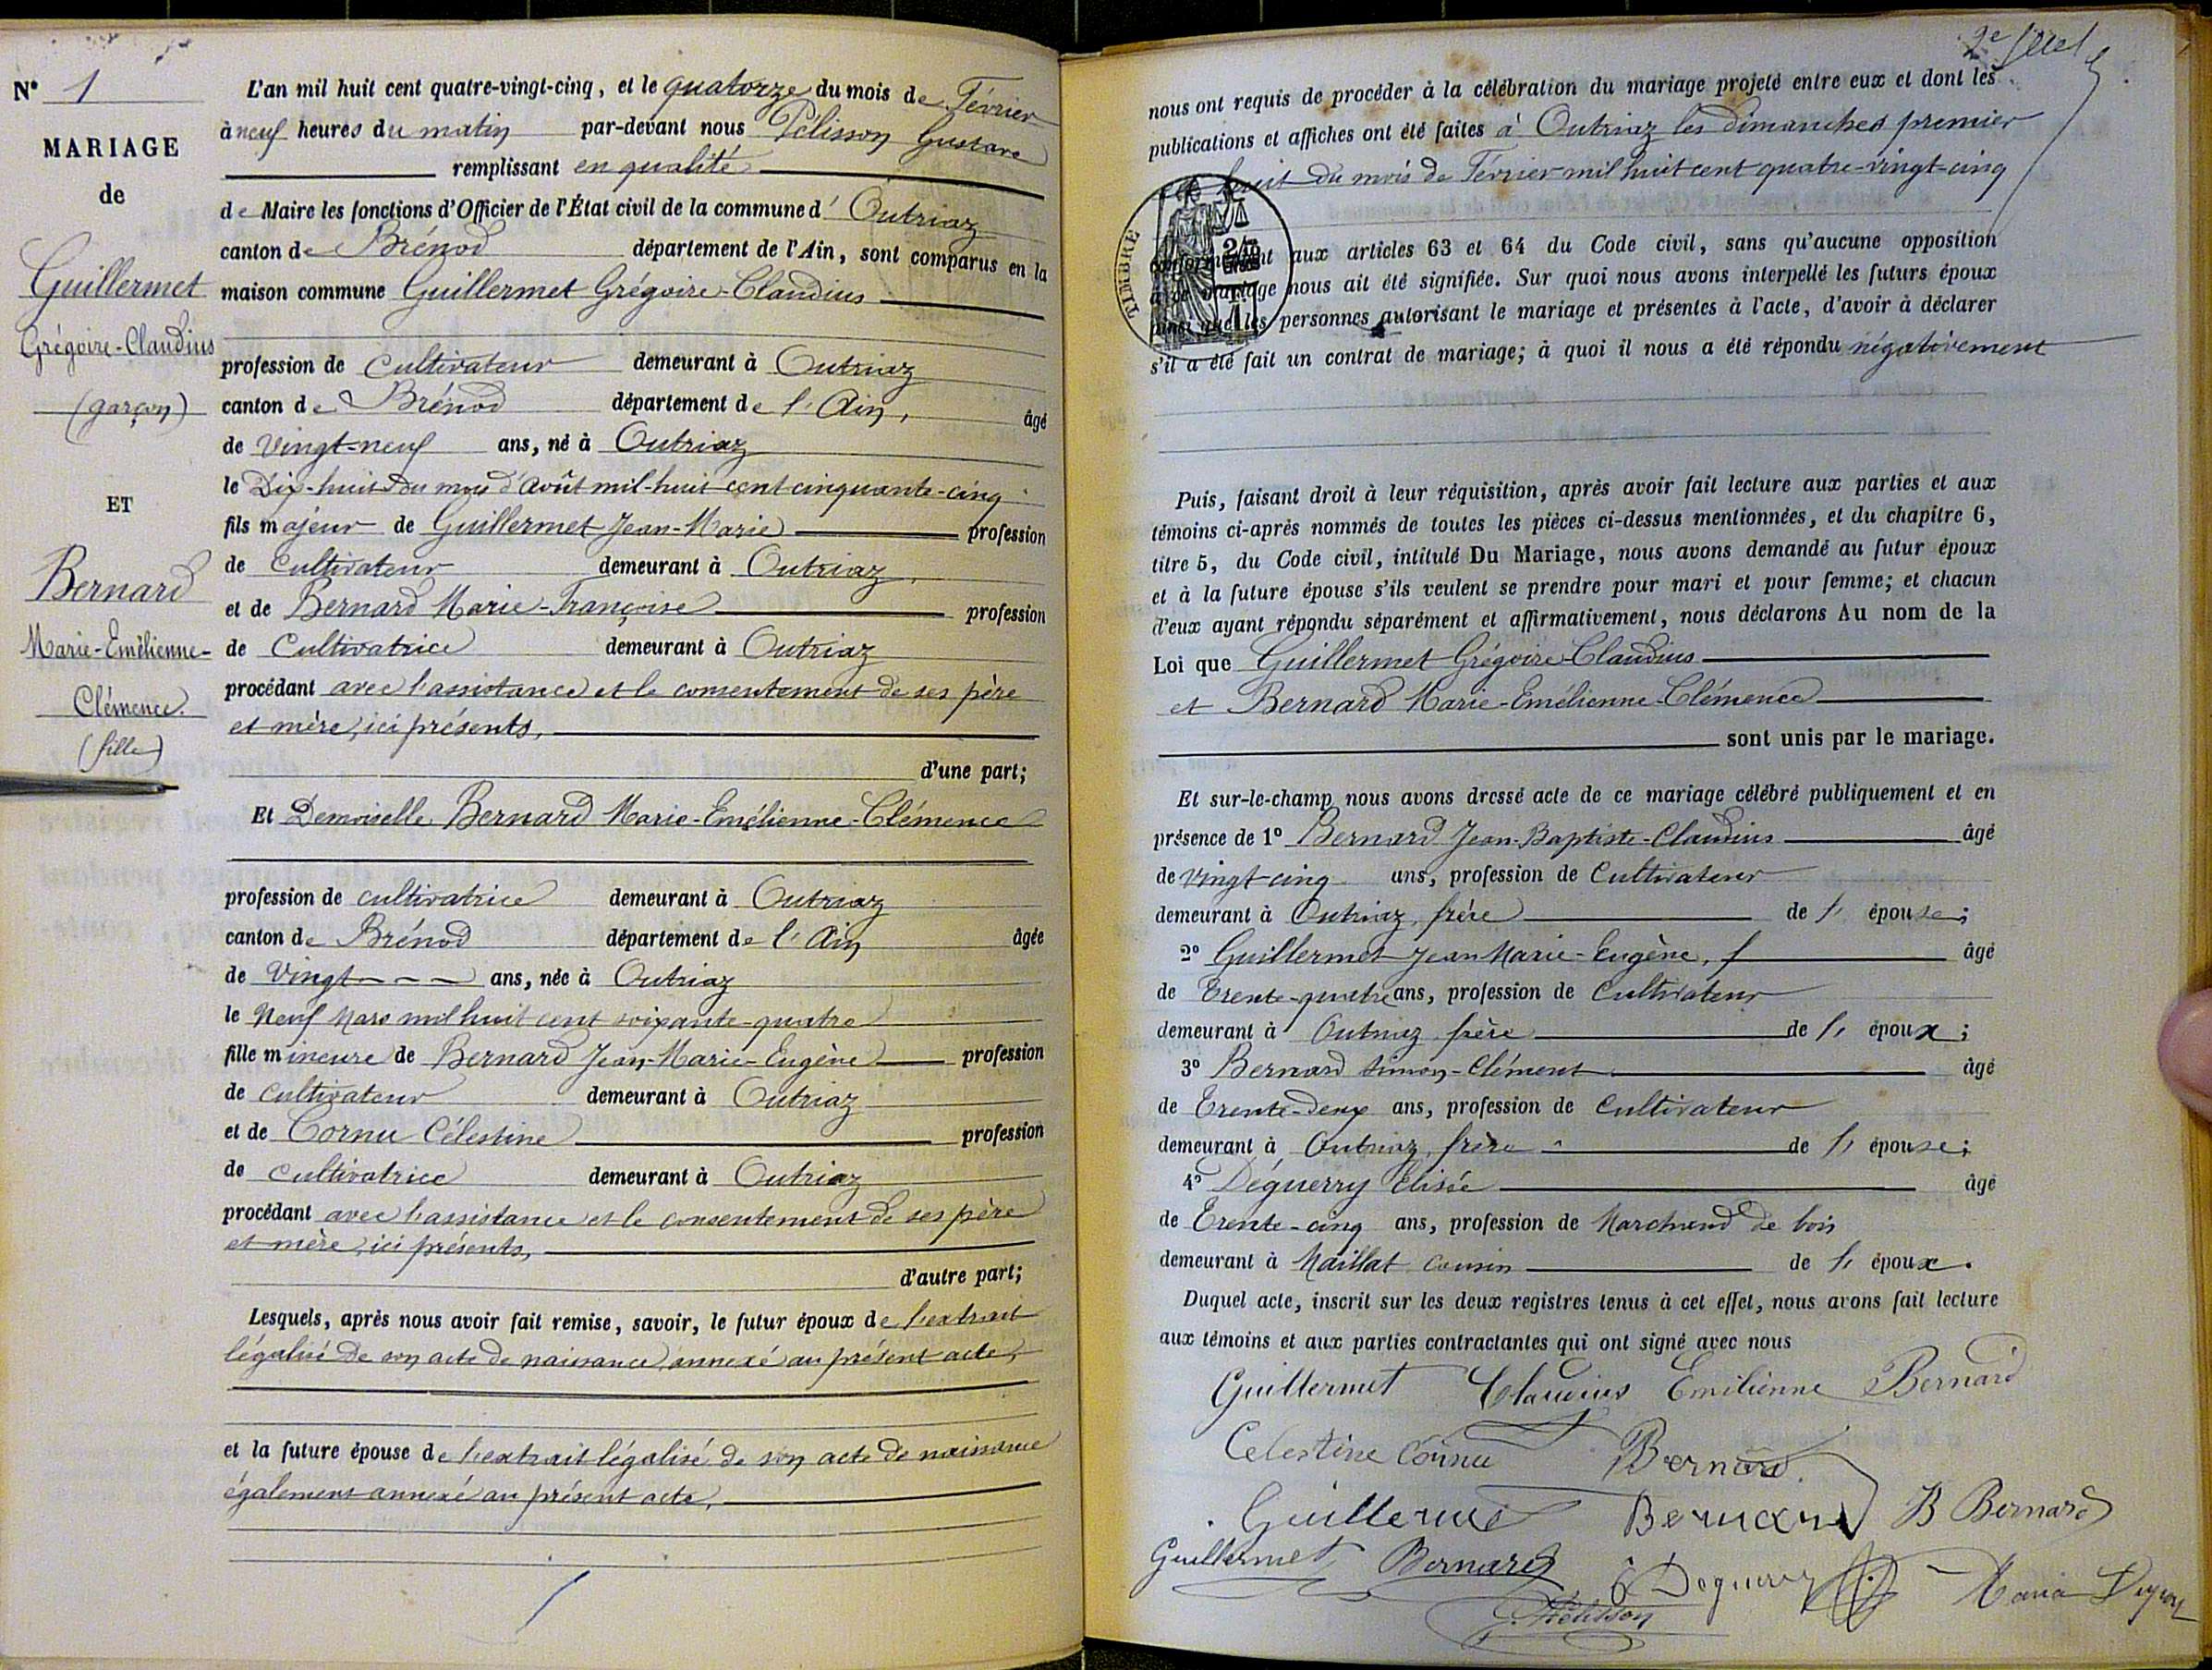 N° 1
MARIAGE
de
Guillermet
Grégoire-Claudius
(garçon)
ET
Bernard
Marie-Emélienne-
Clémence.
(fille)
L'an mil huit cent quatre-vingt-cinq, et le quatorze du mois de Février
à neuf heures du matin par-devant nous Pélisson Gustave
remplissant en qualité
de Maire les fonctions d'Officier de l'État civil de la commune d' Outriaz
canton de Brénod département de l'Ain, sont comparus en la
maison commune Guillermet Grégoire-Claudius
profession de Cultivateur demeurant à Outriaz
canton de Brénod département de l'Ain, âgé
de Vingt-neuf ans, né à Outriaz
le Dix-huit du mois d'Août mil-huit cent cinquante-cinq
fils majeur de Guillermet Jean-Marie profession
de Cultivateur demeurant à Outriaz,
et de Bernard Marie-Françoise profession
de Cultivatrice demeurant à Outriaz
procédant avec l'assistance et le consentement de ses père
et mère, ici présents,
d'une part;
Et Demoiselle Bernard Marie-Emélienne-Clémence
profession de cultivatrice demeurant à Outriaz
canton de Brénod département de l'Ain âgée
de Vingt --- ans, née à Outriaz
le Neuf Mars mil huit cent soixante-quatre
fille mineure de Bernard Jean-Marie-Eugène profession
de cultivateur demeurant à Outriaz
et de Cornu Célestine profession
de cultivatrice demeurant à Outriaz
procédant avec l'assistance et le consentement de ses père
et mère, ici présents,
d'autre part;
Lesquels, après nous avoir fait remise, savoir, le futur époux de l'extrait
légalisé de son acte de naissance, annexé au présent acte,
et la future épouse de l'extrait légalisé de son acte de naissance
également annexé au présent acte,
2e
nous ont requis de procéder à la célébration du mariage projeté entre eux et dont les
publications et affiches ont été faites à Outriaz les dimanches premier
huit du mois de Février mil huit cent quatre-vingt-cinq
TIMBRE
conformément aux articles 63 et 64 du Code civil, sans qu'aucune opposition
à ce mariage nous ait été signifiée. Sur quoi nous avons interpellé les futurs époux
ainsi que les personnes autorisant le mariage et présentes à l'acte, d'avoir à déclarer
s'il a été fait un contrat de mariage; à quoi il nous a été répondu négativement
Puis, faisant droit à leur réquisition, après avoir fait lecture aux parties et aux
témoins ci-après nommés de toutes les pièces ci-dessus mentionnées, et du chapitre 6,
titre 5, du Code civil, intitulé Du Mariage, nous avons demandé au futur époux
et à la future épouse s'ils veulent se prendre pour mari et pour femme; et chacun
d'eux ayant répondu séparément et affirmativement, nous déclarons Au nom de la
Loi que Guillermet Grégoire-Claudius
et Bernard Marie-Emélienne-Clémence
sont unis par le mariage.
Et sur-le-champ nous avons dressé acte de ce mariage célébré publiquement et en
présence de 1° Bernard Jean-Baptiste-Claudius âgé
de vingt cinq ans, profession de Cultivateur
demeurant à Outriaz, frère de l' épouse;
2° Guillermet Jean Marie-Eugène, âgé
de Trente-quatre ans, profession de Cultivateur
demeurant à Outriaz frère de l' époux;
3° Bernard Simon-Clément âgé
de Trente-deux ans, profession de Cultivateur
demeurant à Outriaz, frère de l' épouse;
4° Déguerry Elisée âgé
de Trente-cinq ans, profession de Marchand de bois
demeurant à Maillat cousin de l' époux.
Duquel acte, inscrit sur les deux registres tenus à cet effet, nous avons fait lecture
aux témoins et aux parties contractantes qui ont signé avec nous
Guillermet Claudius Emilienne Bernard
Celestine Cornu Bernard
Guillermet Bernard B Bernard
Guillermet Bernard E Deguerry Maria
G. Pélisson